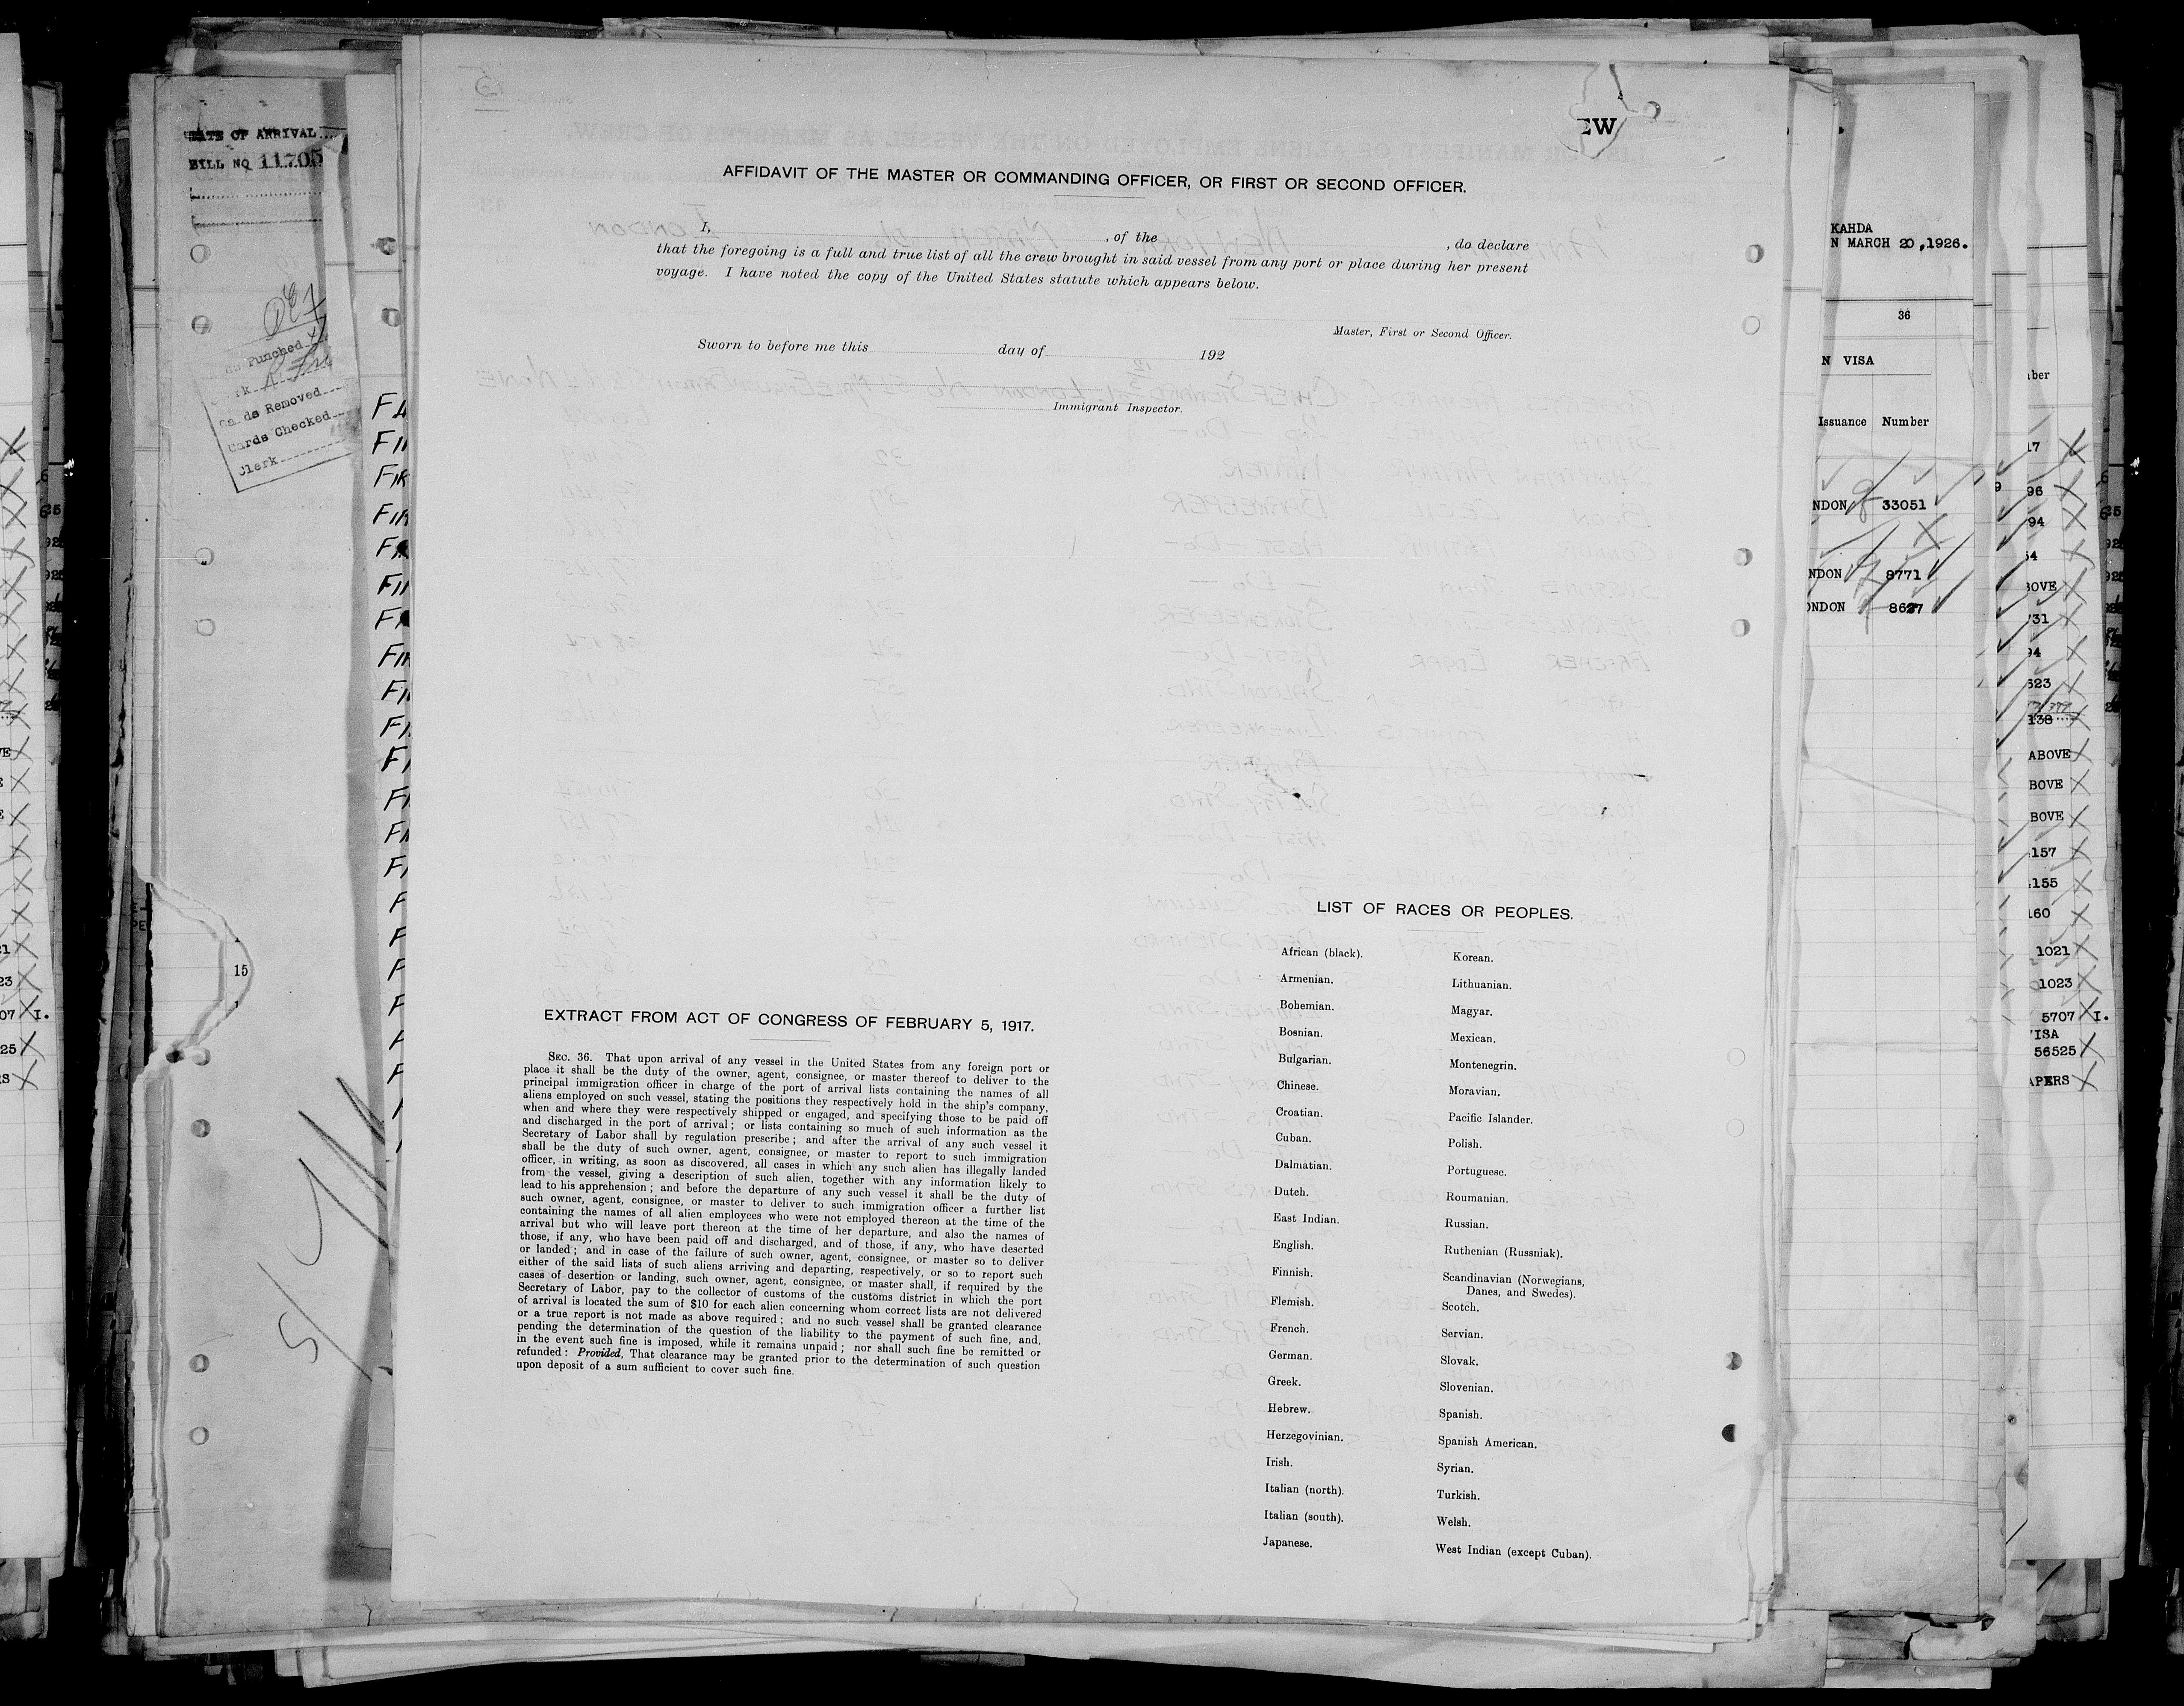 DATE OF ARRIVAL
BILL NO 11705
Punched
Cards Removed
Cards Checked
Clerk
15
EW
AFFIDAVIT OF THE MASTER OR COMMANDING OFFICER, OR FIRST OR SECOND OFFICER.
I, , of the , do declare
that the foregoing is a full and true list of all the crew brought in said vessel from any port or place during her present
voyage. I have noted the copy of the United States statute which appears below.
Master, First or Second Officer.
Sworn to before me this day of 192
Immigrant Inspector.
EXTRACT FROM ACT OF CONGRESS OF FEBRUARY 5, 1917.
SEC. 36. That upon arrival of any vessel in the United States from any foreign port or
place it shall be the duty of the owner, agent, consignee, or master thereof to deliver to the
principal immigration officer in charge of the port of arrival lists containing the names of all
aliens employed on such vessel, stating the positions they respectively hold in the ship's company,
when and where they were respectively shipped or engaged, and specifying those to be paid off
and discharged in the port of arrival; or lists containing so much of such information as the
Secretary of Labor shall by regulation prescribe; and after the arrival of any such vessel it
shall be the duty of such owner, agent, consignee, or master to report to such immigration
officer, in writing, as soon as discovered, all cases in which any such alien has illegally landed
from the vessel, giving a description of such alien, together with any information likely to
lead to his apprehension; and before the departure of any such vessel it shall be the duty of
such owner, agent, consignee, or master to deliver to such immigration officer a further list
containing the names of all alien employees who were not employed thereon at the time of the
arrival but who will leave port thereon at the time of her departure, and also the names of
those, if any, who have been paid off and discharged, and of those, if any, who have deserted
or landed; and in case of the failure of such owner, agent, consignee, or master so to deliver
either of the said lists of such aliens arriving and departing, respectively, or so to report such
cases of desertion or landing, such owner, agent, consignee, or master shall, if required by the
Secretary of Labor, pay to the collector of customs of the customs district in which the port
of arrival is located the sum of $10 for each alien concerning whom correct lists are not delivered
or a true report is not made as above required; and no such vessel shall be granted clearance
pending the determination of the question of the liability to the payment of such fine, and,
in the event such fine is imposed, while it remains unpaid; nor shall such fine be remitted or
refunded: Provided, That clearance may be granted prior to the determination of such question
upon deposit of a sum sufficient to cover such fine.
LIST OF RACES OR PEOPLES.
African (black).
Armenian.
Bohemian.
Bosnian.
Bulgarian.
Chinese.
Croatian.
Cuban.
Dalmatian.
Dutch.
East Indian.
English.
Finnish.
Flemish.
French.
German.
Greek.
Hebrew.
Herzegovinian.
Irish.
Italian (north).
Italian (south).
Japanese.
Korean.
Lithuanian.
Magyar.
Mexican.
Montenegrin.
Moravian.
Pacific Islander.
Polish.
Portuguese.
Roumanian.
Russian.
Ruthenian (Russniak).
Scandinavian (Norwegians,
Danes, and Swedes).
Scotch.
Servian.
Slovak.
Slovenian.
Spanish.
Spanish American.
Syrian.
Turkish.
Welsh.
West Indian (except Cuban).
KAHDA
N MARCH 20, 1926.
36
N VISA
Issuance Number
NDON 33051
NDON 8771
ONDON 8627
ber
17
96
94
54
BOVE
731
94
523
138
ABOVE
BOVE
BOVE
157
155
160
1021
1023
5707 I.
VISA
56525
APERS